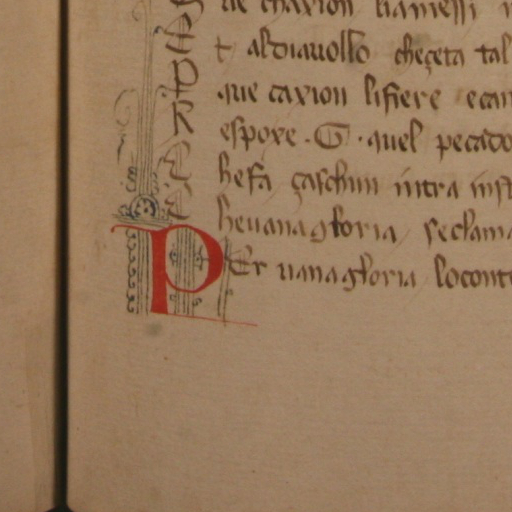 de chaxion liamessi
t aldiauollo cheçeta tal
que caxion lifiere ecan
espoxe · G · quel pecado
hefa çaschun intra inst
heuanagloria seclama
PEr uanagloria loconte